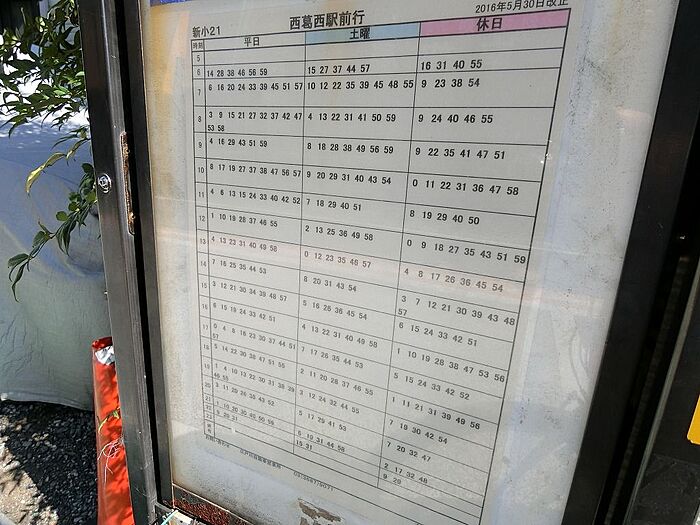 2016年5月30日改正
新小21 西葛西駅前行
時刻 平日 土曜 休日
5
6 14 28 38 46 56 59 15 27 37 44 57 16 31 40 55
7 6 16 20 24 33 39 45 51 57 10 12 22 35 39 45 48 55 9 23 38 54
8 3 9 15 21 27 32 37 42 47 4 13 22 31 41 50 59 9 24 40 46 55
53 58
9 4 16 29 43 51 59 8 18 28 38 49 56 59 9 22 35 41 47 51
10 8 17 19 27 37 38 47 56 57 9 20 29 31 40 43 54 0 11 22 31 36 47 58
11 4 6 13 15 24 33 40 42 52 7 18 29 40 51 8 19 29 40 50
12 1 10 19 28 37 46 55 2 13 25 36 49 58 0 9 18 27 35 43 51 59
13 4 13 23 31 40 49 58 0 12 23 35 46 57 4 8 17 26 36 45 54
14 7 16 25 35 44 53 8 20 31 43 54 3 7 12 21 30 39 43 48
57
15 3 12 21 30 34 39 48 57 5 16 26 36 45 54 6 15 24 33 42 51
16 6 15 19 24 33 42 51 4 13 22 31 40 49 58 1 10 19 28 38 47 53 56
17 0 4 8 16 23 30 37 44 51 7 17 26 35 44 53 5 15 24 33 42 52
57
18 5 14 22 30 38 47 51 55 2 11 20 28 37 46 55 1 11 21 31 39 49 56
19 1 4 10 13 22 30 31 38 39 3 12 24 32 44 55 7 19 30 42 54
46 55
20 3 11 20 26 35 43 52 5 17 29 41 53 7 20 32 47
21 1 10 20 30 40 50 56 6 18 31 44 58 2 17 32 48
22 5 20 31 15 31 9 28